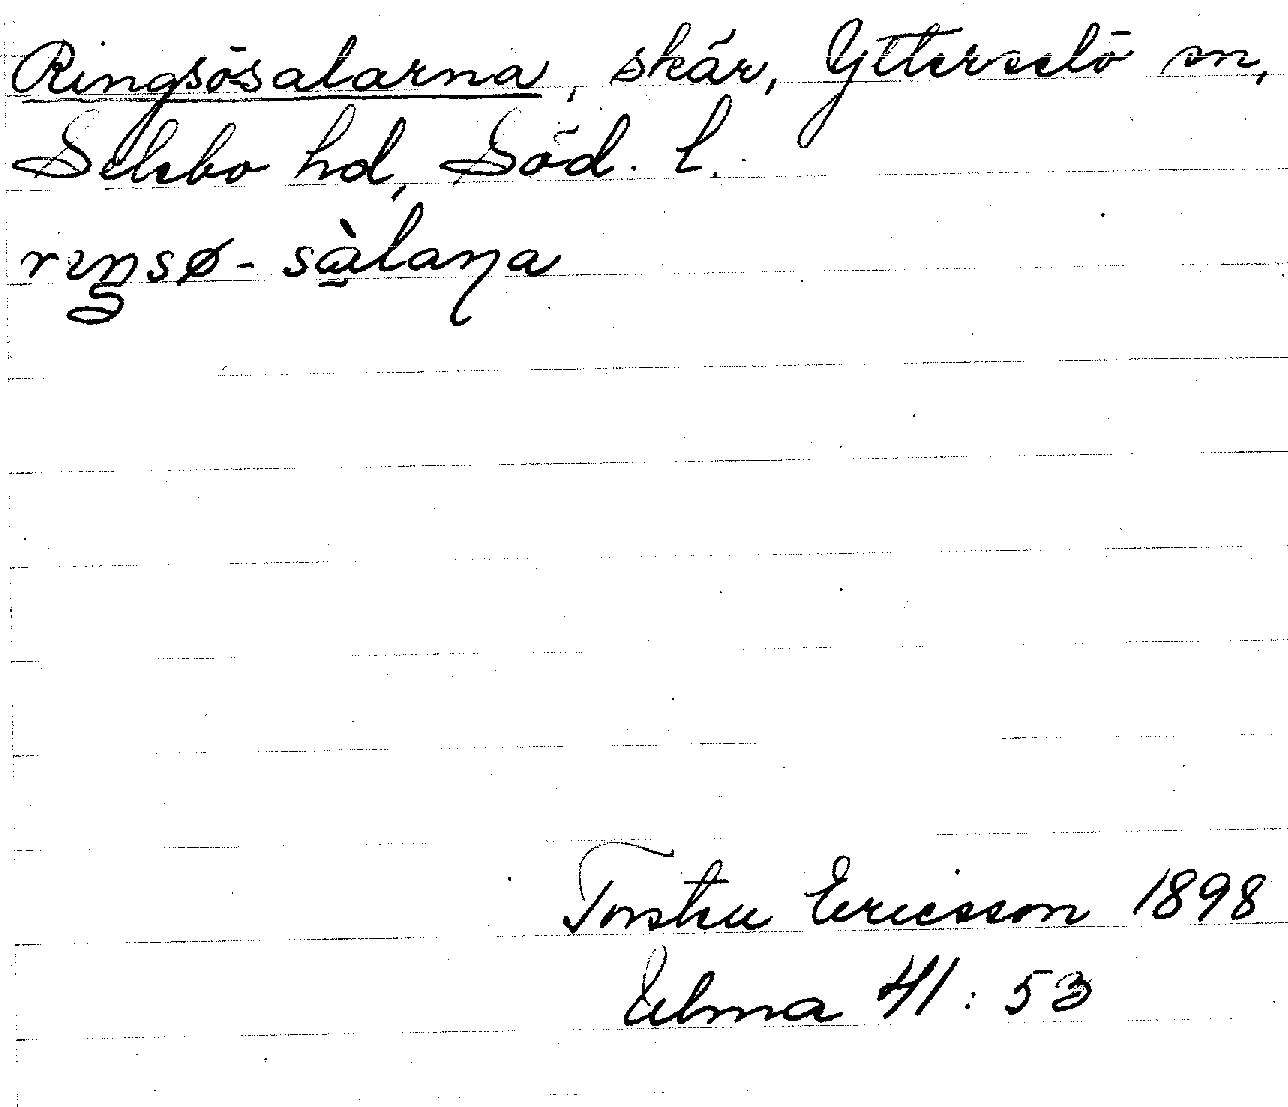 Ringsösalarna, skär, Ytterselö sn,
Selebo hd, Söd. l.
rıŋsø-sàlaɳa
Torsten Ericsson 1898
Ulma 41:53